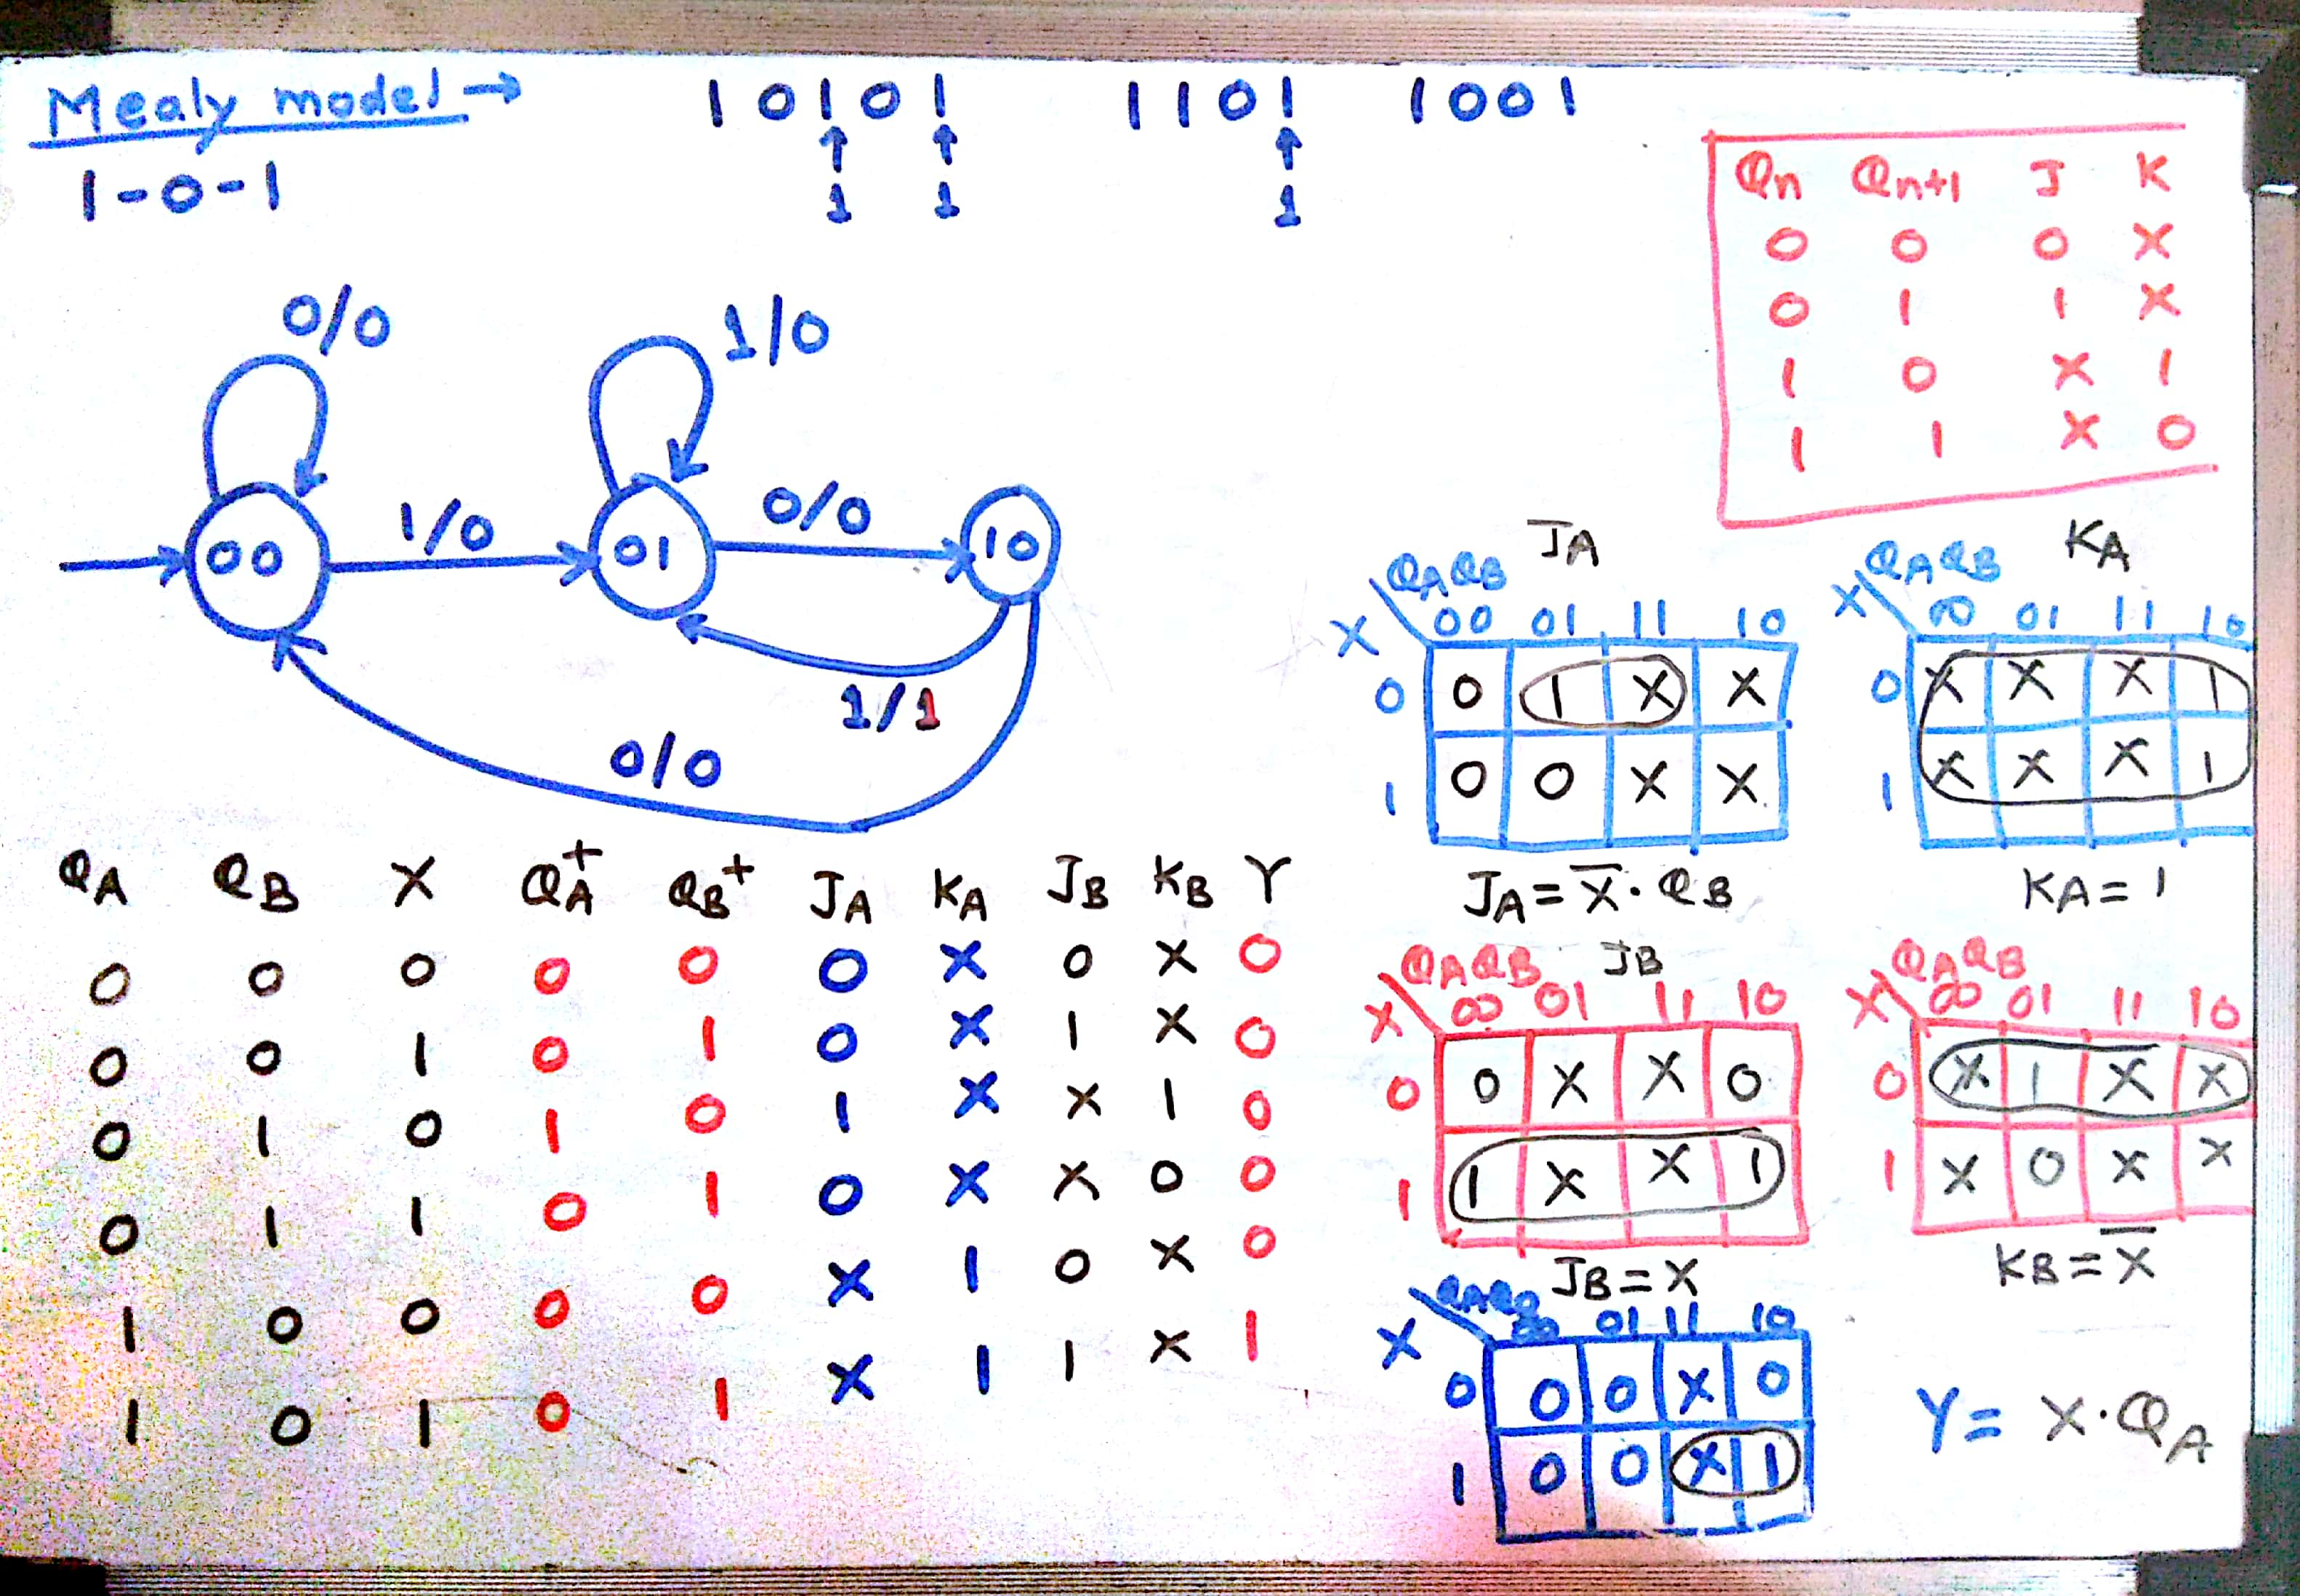 Mealy model → 10101 1101 1001
↑ ↑ ↑
1-0-1 1 1 1
Qn Qn+1 J K
0 0 0 X
0 1 1 X
1 0 X 1
1 1 X 0
0/0
1/0
1/0
0/0
00
01
10
1/1
0/0
QA QB X QA+ QB+ JA KA JB KB Y
0 0 0 0 0 0 X 0 X 0
0 0 1 0 1 0 X 1 X 0
0 1 0 1 0 1 X X 1 0
0 1 1 0 1 0 X X 0 0
1 0 0 0 0 X 1 0 X 0
1 0 1 0 1 X 1 1 X 1
JA
QAQB
X 00 01 11 10
0 0 1 X X
1 0 0 X X
JA = X̅ · QB
KA
QAQB
X 00 01 11 10
0 X X X 1
1 X X X 1
KA = 1
JB
QAQB
X 00 01 11 10
0 0 X X 0
1 1 X X 1
JB = X
QAQB
X 00 01 11 10
0 X 1 X X
1 X 0 X X
KB = X̅
QAQB
X 00 01 11 10
0 0 0 X 0
1 0 0 X 1
Y = X · QA